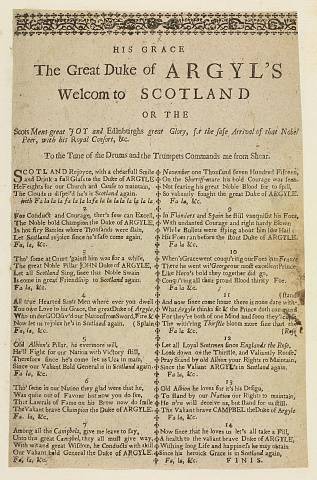 HIS GRACE
The Great Duke of ARGYL'S
Welcom to SCOTLAND
OR THE
Scots Mens great JOY and Edinburghs great Glory, for the safe Arrival of that Nobel
Peer, with his Royal Consort, &c.
To the Tune of the Drums and the Trumpets Commands me from Shoar.
SCOTLAND Rejoyce, with a chearfull Smile
and Drink a full Glass to the Duke of ARGYLE
He Feights for our Church and Cause to maintain,
The Clouds is dispel'd he's in Scotland again.
with Fa la la la fa la la la la la la la
2
For Conduct and Courage, ther's few can Excell,
The Noble bold Champion the Duke of ARGYLE,
In hot firy Battles where Thousands were slain,
Let Scotland rejoice since he's safe come again,
Fa la, &c.
3
Tho' some at Court 'gainst him was for a while,
The great Noble Pillar JOHN Duke of ARGYLE,
Let all Scotland Sing, since that Noble Swain
Is come in great Friendship to Scotland again.
Fa la, &c.
4
All true Hearted Scots Men where ever you dwell
You owe Love to his Grace, the great Duke of Argyle,
Who under GOD Saved our Nation from Sword, Fire &
Now let us rejoice he's in Scotland again. (Spain
Fa la, &c.
5
Old Albin's Pillar, he evermore will,
He'll Fight for our Nation with Victory still,
Therefore since he's come let us Use in main,
Since our Valiant bold General is in Scotland again.
Fa la, &c.
6
Tho' some in our Nation they glad were that he,
Was quite out of Favour but now you do see,
That Lawrals of Fame on his Brow now do smile
The Valiant brave Champion the Duke of ARGYLE.
Fa la, &c.
7
Among all the Campbels, give me leave to say,
Unto this great Campbel, they all must give way,
With wit and great Wisdom, he Conducts with skill
Our Valiant bold General the Duke of ARGYLE.
Fa la, &c.
November one Thousand Seven Hundred Fifteen,
On the Sherriff-muir his bold Courage was seen
Not fearing his great Noble Blood for to spill,
So valiantly fought the great Duke of ARGYLE.
Fa la, &c.
9
In Flanders and Spain he still vanquisht his Foes,
With undanted Courage and right hardy Blows
While Bullets were flying about him like Hail
His Foes ran before the stout Duke of ARGYLE.
Fa la, &c.
10
like Hero's bold they together did go,
Fa la, &c.
11
And now since come home there is none dare with-
What Argyle thinks fit & the Prince doth command
For they're both of one Mind and soon they'll
The withering Thristle bloom more fine than the
Fa la, &c.
12
Let all Loyal Scotsmen since Englands the Rose,
Look down on the Thristle, and Valiantly Rose:
Pray Stand by old Albin your Rights to Maintain,
Since the Valiant ARGYLE's in Scotland again.
Fa la, &c.
13
Old Albin he loves for it's his Design,
To Stand by our Nation our Rights to maintain;
He n'er will deceive us, but stand for us still,
The Valiant brave CAMPBEL the Duke of Argyle
Fa la, &c.
14
Now since that he loves us let's all take a Fill,
A health to the valiant brave Duke of ARGYLE,
Wishing long Life and happiness he may obtain
Since his heroick Grace is in Scotland again.
Fa la, &c. FINIS.